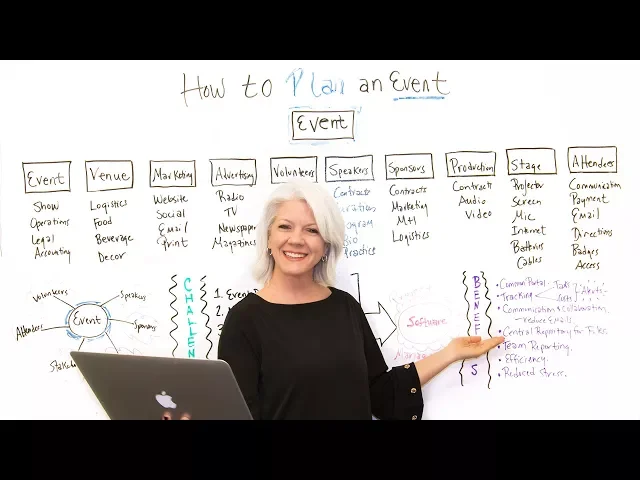 How to Plan an Event
Event
Event
Show
Operations
Legal
Accounting
Venue
Logistics
Food
Beverage
Decor
Marketing
Website
Social
Email
Print
Advertising
Radio
TV
Newspaper
Magazines
Volunteers
Speakers
Contracts
Sponsors
Contracts
Marketing
M+I
Logistics
Production
Contracts
Audio
Video
Stage
Projector
Screen
Mic
Internet
Batteries
Cables
Attendees
Communication
Payment
Email
Directions
Badges
Access
Volunteers
Speakers
Attendees
Event
Sponsors
CHALLEN
1. Event
2.
3
Software
BENEF
S
• Common Portal - Tasks
• Tracking Costs Alerts
• Communication & Collaboration
- reduce Emails
• Central Repository for Files
• Team Reporting.
• Efficiency.
• Reduced Stress.